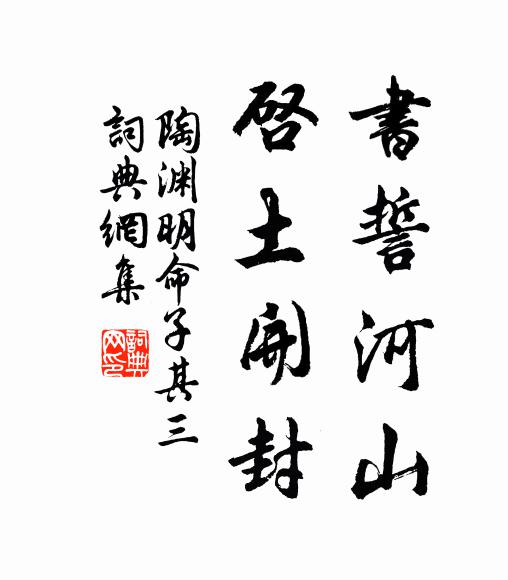 書誓河山
啓土開封
陶渊明命子其三
詞典網集
詞典网印